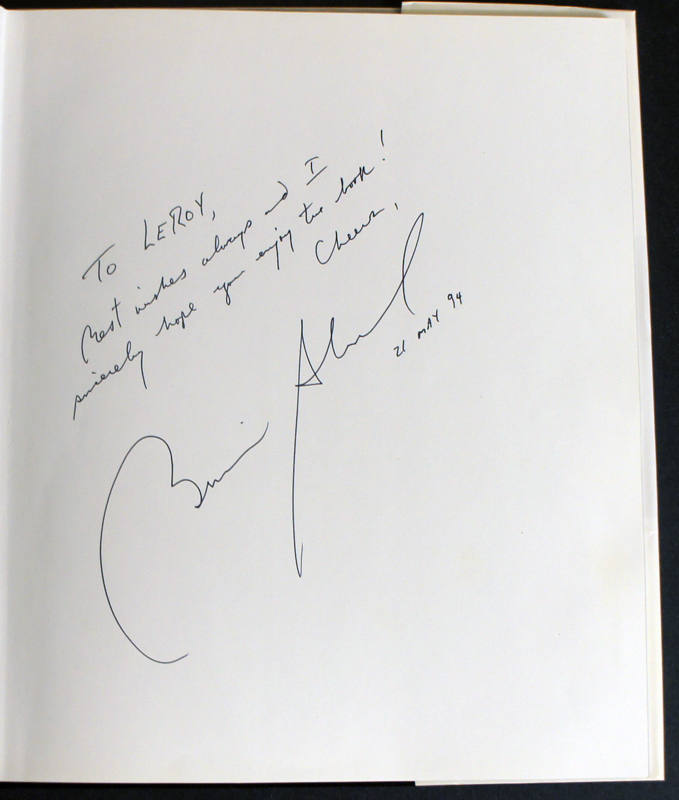 To LEROY,
Best wishes always and I
sincerely hope you enjoy the book!
Cheers,
21 MAY 94